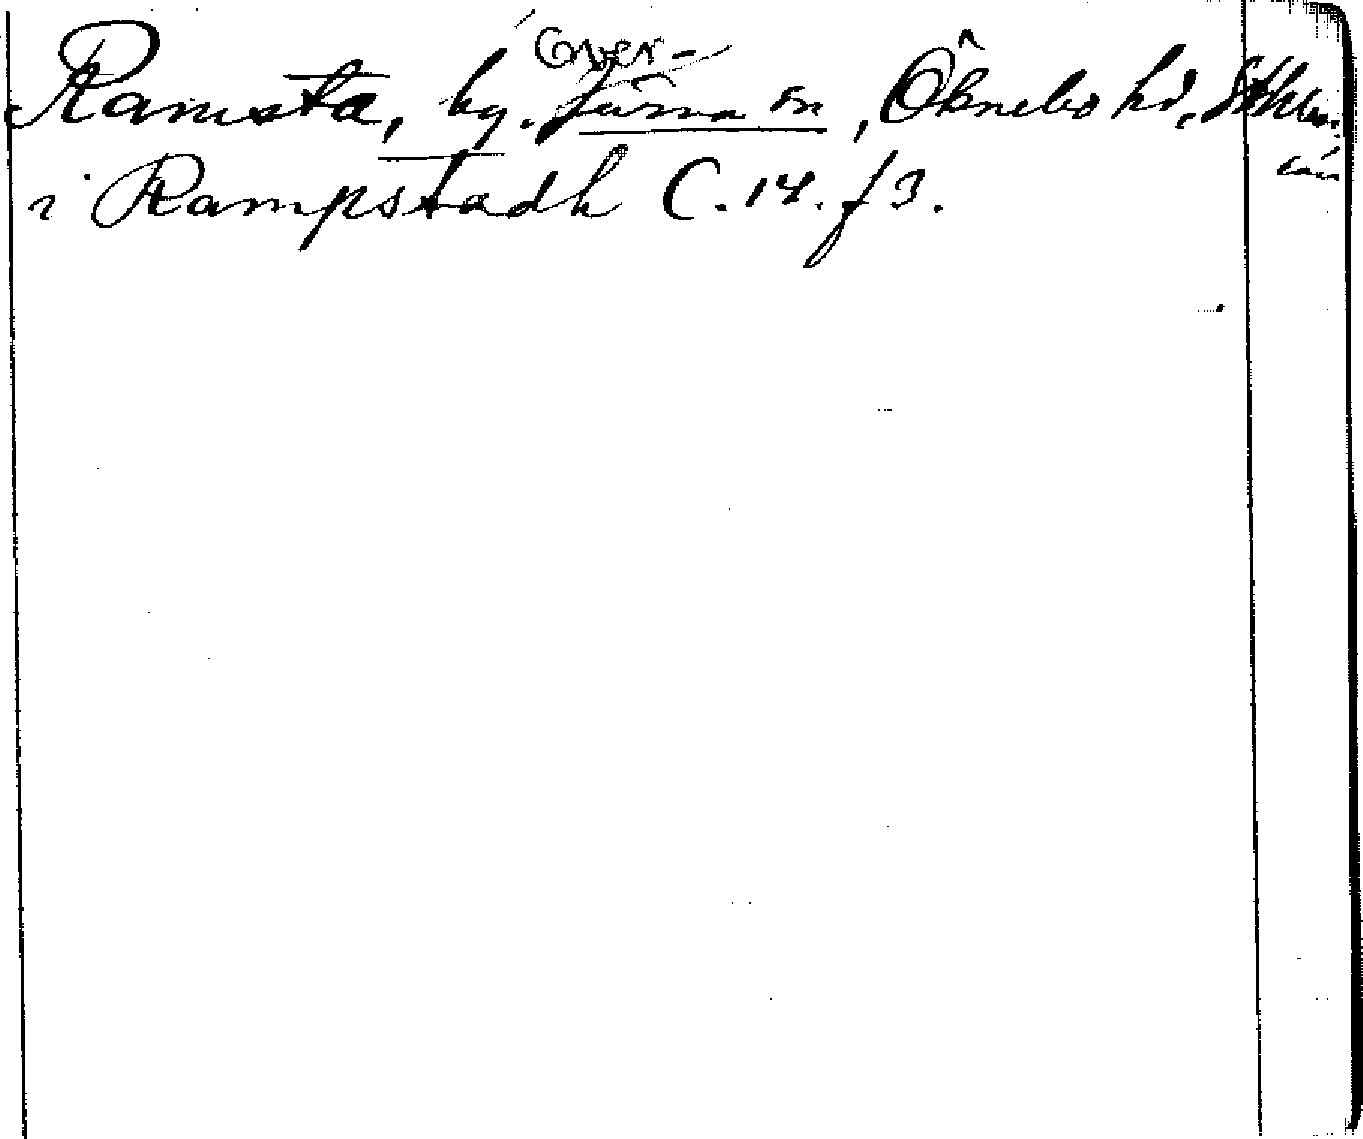 Över-
Ramsta, by. Järna sn, Öknebo hd, Sthlms
län
i Rampstadh C. 14. f 3.